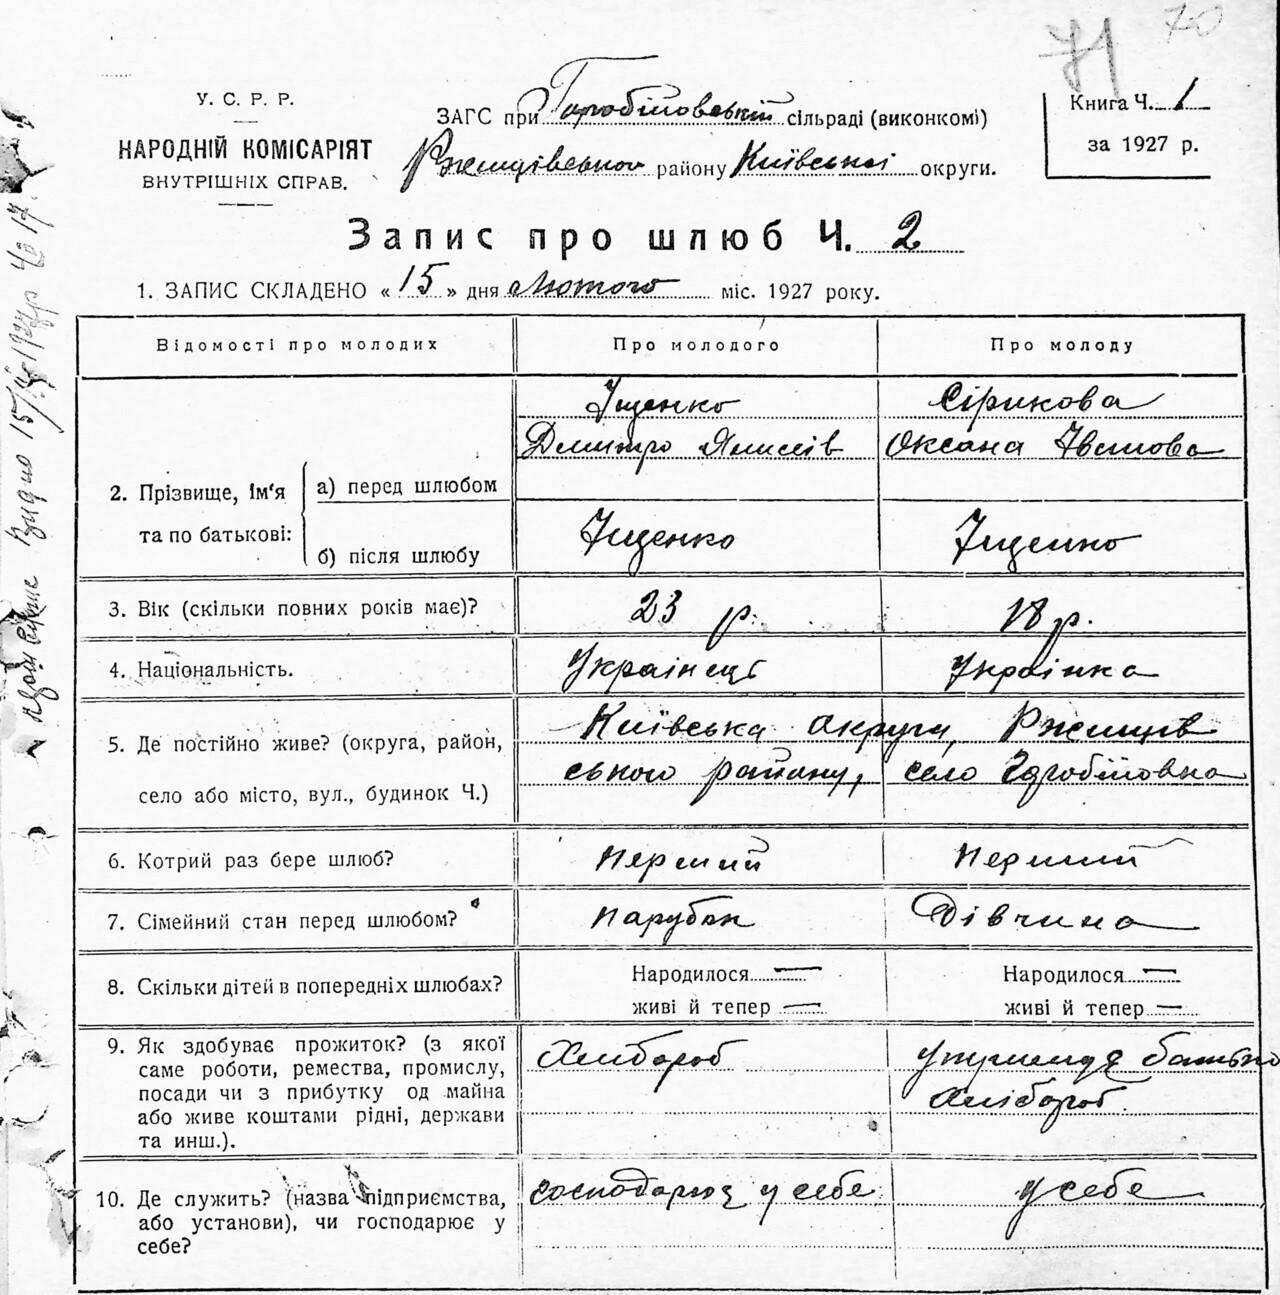 71 70
У. С. Р. Р.
НАРОДНІЙ КОМІСАРІЯТ
ВНУТРІШНІХ СПРАВ.
ЗАГС при Горобіївській сільраді (виконкомі)
Ржищівського району Київської округи.
Книга Ч. 1
за 1927 р.
Запис про шлюб Ч. 2
1. ЗАПИС СКЛАДЕНО « 15 » дня Лютого міс. 1927 року.
Відомості про молодих
Про молодого
Про молоду
2. Прізвище, ім'я та по батькові:
а) перед шлюбом
Іщенко
Дмитро
Сірикова
Оксана Іванова
б) після шлюбу
Іщенко
Іщенко
3. Вік (скільки повних років має)?
23 р.
18 р.
4. Національність.
Українець
Українка
5. Де постійно живе? (округа, район,
село або місто, вул., будинок Ч.)
Київська округи, Ржищів
ського району, село Горобіївка
6. Котрий раз бере шлюб?
перший
перший
7. Сімейний стан перед шлюбом?
парубок
Дівчина
8. Скільки дітей в попередніх шлюбах?
Народилося —
живі й тепер —
Народилося —
живі й тепер —
9. Як здобуває прожиток? (з якої
саме роботи, ремества, промислу,
посади чи з прибутку од майна
або живе коштами рідні, держави
та инш.).
Хлібороб
Хлібороб
10. Де служить? (назва підприємства,
або установи), чи господарює у
себе?
господарює у себе
у себе